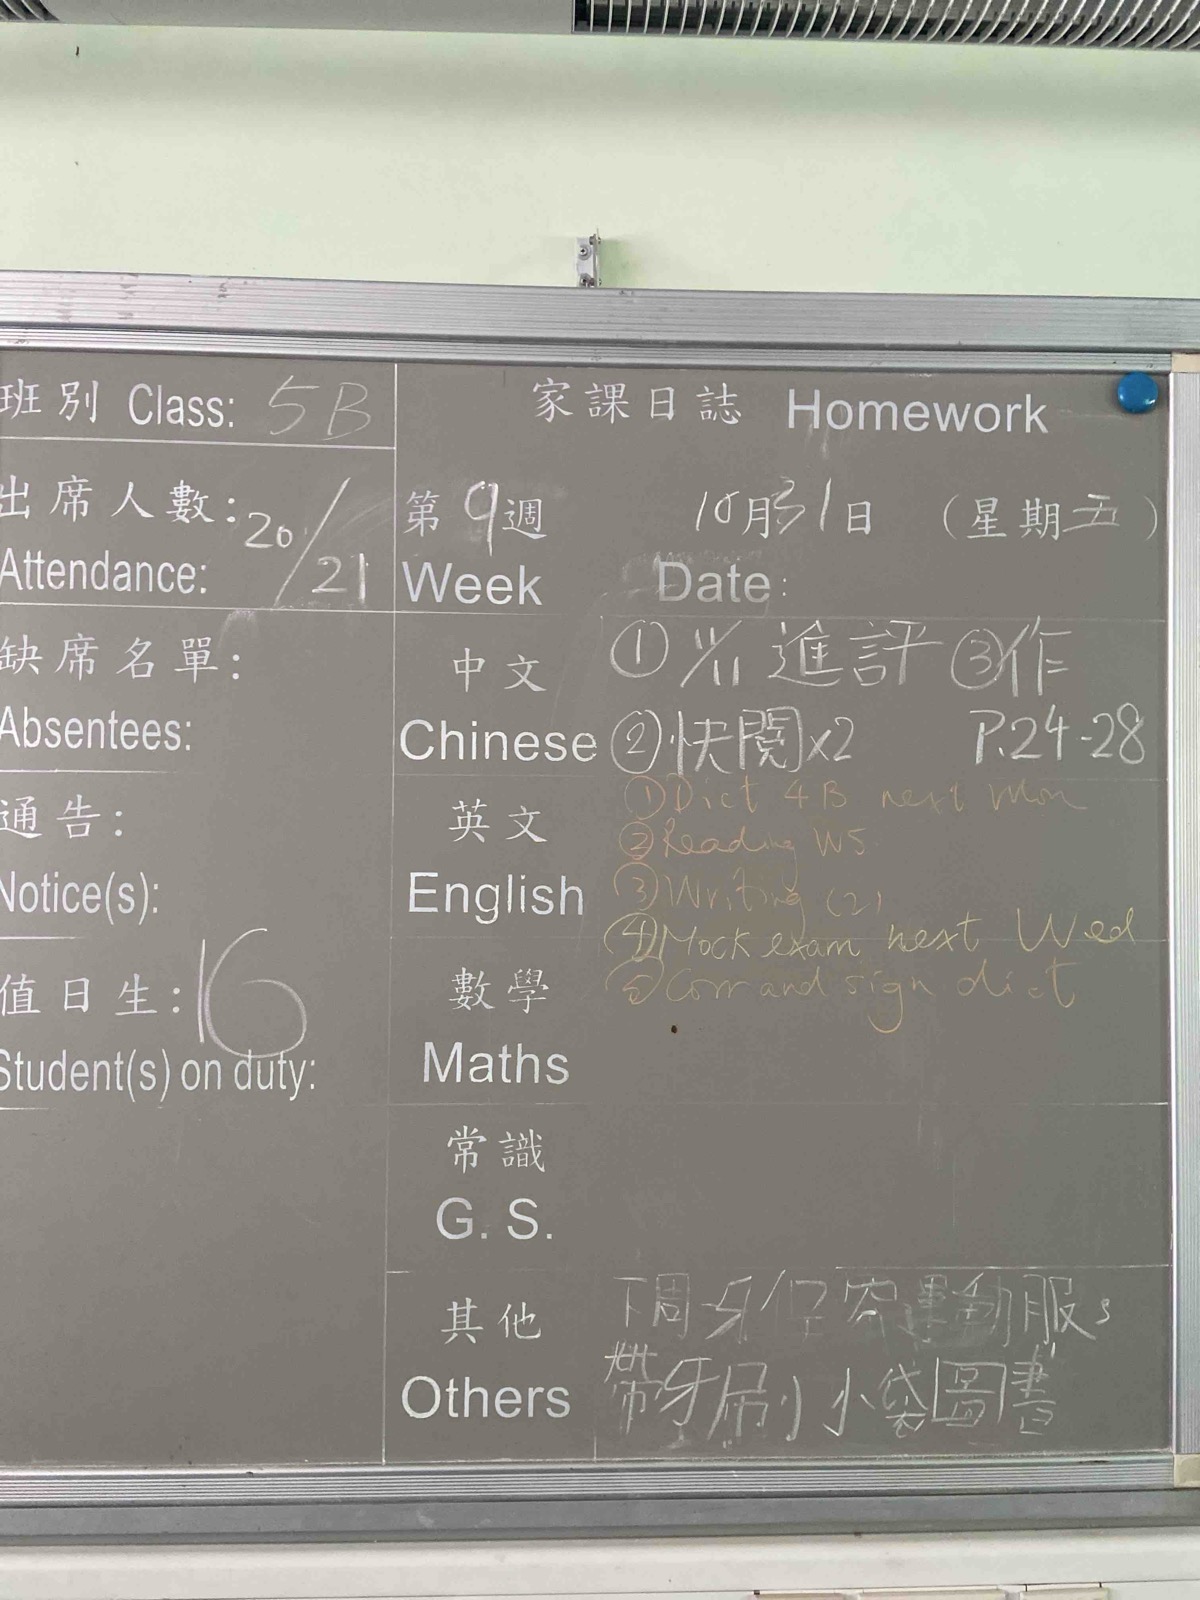 班別 Class: 5B
出席人數: 20/21
Attendance:
缺席名單:
Absentees:
通告:
Notice(s):
值日生: 16
Student(s) on duty:
家課日誌 Homework
第9週 10月31日 (星期五)
Week Date:
中文 ① 進評 ③作
Chinese ②快閱x2 P.24-28
英文 ①Dict 4B next Mon
②Reading WS
English ③Writing (2)
④Mock exam next Wed
數學 ⑤Corr and sign dict
Maths
常識
G. S.
其他 下周 牙 運動服,
Others 帶牙刷 小袋圖書